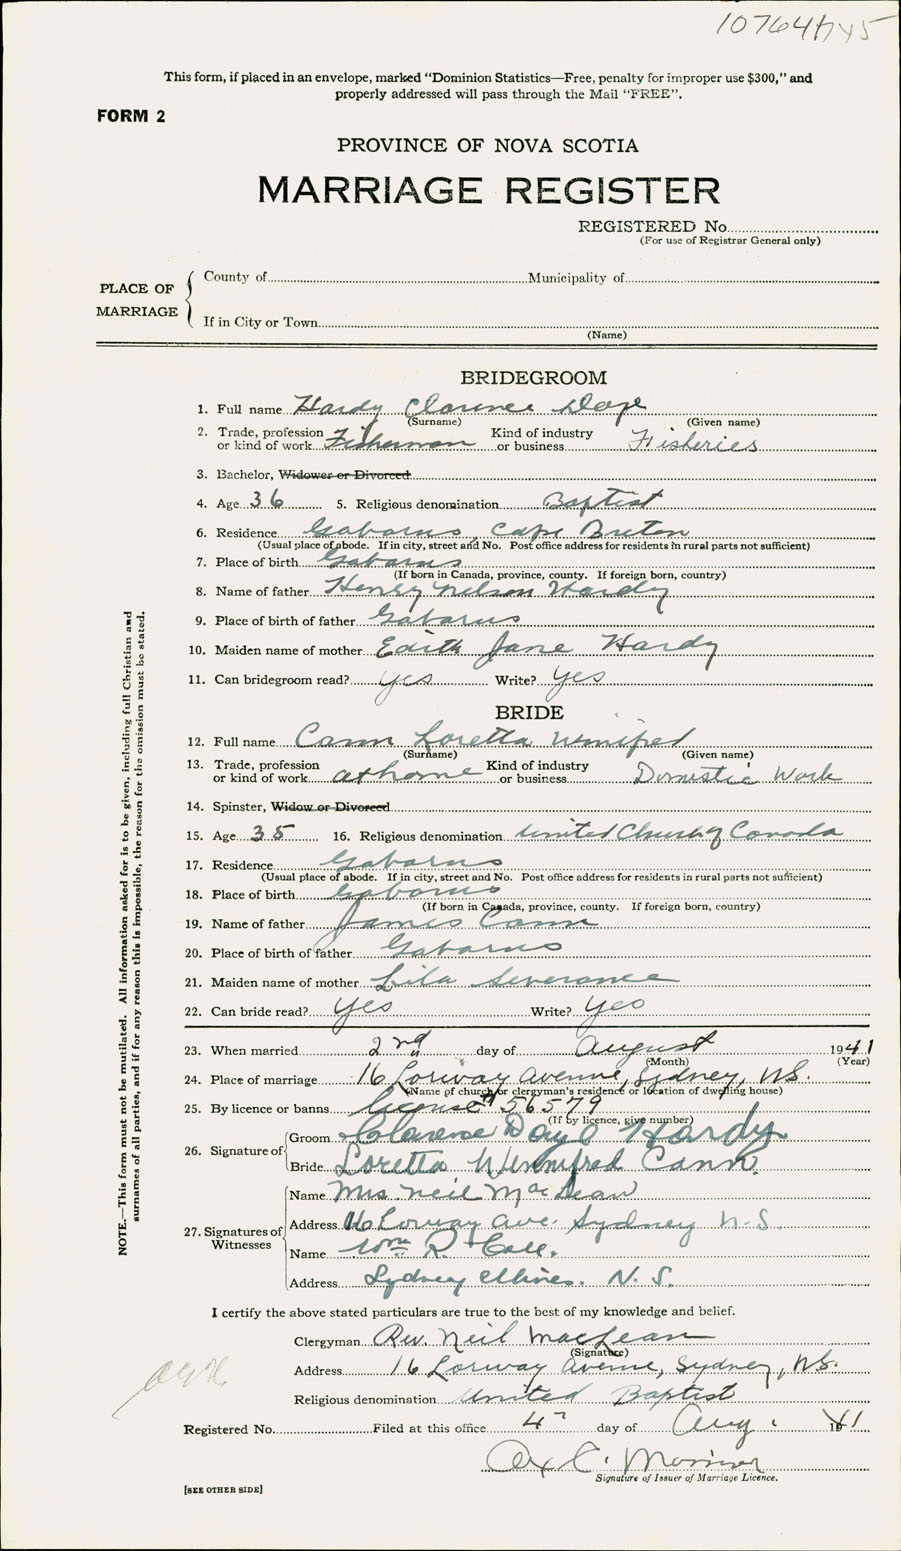 This form, if placed in an envelope, marked “Dominion Statistics—Free, penalty for improper use $300,” and
properly addressed will pass through the Mail “FREE”.
FORM 2
PROVINCE OF NOVA SCOTIA
MARRIAGE REGISTER
REGISTERED No.
(For use of Registrar General only)
PLACE OF MARRIAGE
County of Municipality of
If in City or Town
(Name)
BRIDEGROOM
1. Full name Hardy Clarence Daye
(Surname) (Given name)
2. Trade, profession or kind of work Fisherman Kind of industry or business Fisheries
3. Bachelor, Widower or Divorced
4. Age 36 5. Religious denomination Baptist
6. Residence Gabarus, Cape Breton
(Usual place of abode. If in city, street and No. Post office address for residents in rural parts not sufficient)
7. Place of birth Gabarus
(If born in Canada, province, county. If foreign born, country)
8. Name of father Henry Nelson Hardy
9. Place of birth of father Gabarus
10. Maiden name of mother Edith Jane Hardy
11. Can bridegroom read? yes Write? yes
BRIDE
12. Full name Cann Loretta Winifred
(Surname) (Given name)
13. Trade, profession or kind of work at home Kind of industry or business Domestic Work
14. Spinster, Widow or Divorced
15. Age 35 16. Religious denomination United Church of Canada
17. Residence Gabarus
(Usual place of abode. If in city, street and No. Post office address for residents in rural parts not sufficient)
18. Place of birth Gabarus
(If born in Canada, province, county. If foreign born, country)
19. Name of father James Cann
20. Place of birth of father Gabarus
21. Maiden name of mother Lila Severance
22. Can bride read? yes Write? yes
23. When married 2nd day of August 1941
(Month) (Year)
24. Place of marriage 16 Lorway Avenue, Sydney, N.S.
(Name of church or clergyman's residence or location of dwelling house)
25. By licence or banns license # 56579
(If by licence, give number)
26. Signature of Groom Clarence Daye Hardy
Bride Loretta Winnifred Cann.
27. Signatures of Witnesses
Name Mrs. Neil MacLean
Address 16 Lorway Ave. Sydney N.S.
Name Wm R.
Address Sydney Mines. N.S.
I certify the above stated particulars are true to the best of my knowledge and belief.
Clergyman Rev. Neil MacLean
(Signature)
Address 16 Lorway Avenue, Sydney, N.S.
Religious denomination United Baptist
Registered No. Filed at this office 4 day of Aug. 1941
Signature of Issuer of Marriage Licence.
[SEE OTHER SIDE]
NOTE.—This form must not be mutilated. All information asked for is to be given, including full Christian and
surnames of all parties, and if for any reason this is impossible, the reason for the omission must be stated.